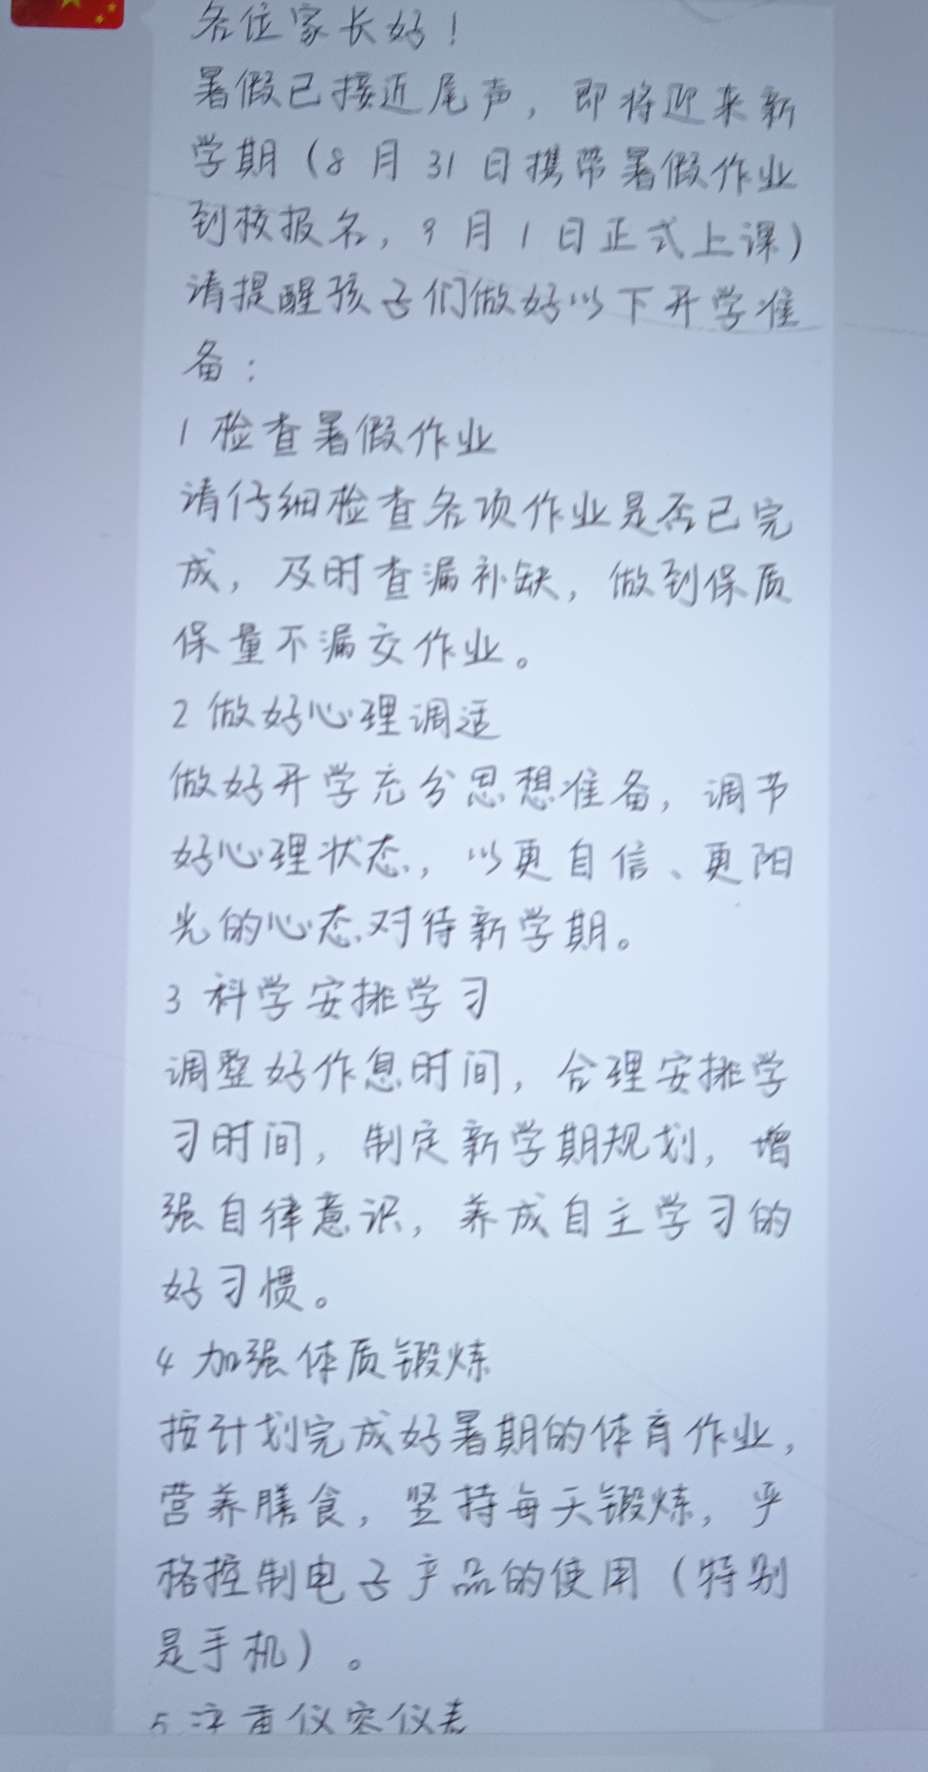 各位家长好！
暑假已接近尾声，即将迎来新
学期（8月31日携带暑假作业
到校报名，9月1日正式上课）
请提醒孩子们做好以下开学准
备：
1 检查暑假作业
请仔细检查各项作业是否已完
成，及时查漏补缺，做到保质
保量不漏交作业。
2 做好心理调适
做好开学充分思想准备，调节
好心理状态，以更自信、更阳
光的心态对待新学期。
3 科学安排学习
调整好作息时间，合理安排学
习时间，制定新学期规划，增
强自律意识，养成自主学习的
好习惯。
4 加强体质锻炼
按计划完成好暑期的体育作业，
营养膳食，坚持每天锻炼，严
格控制电子产品的使用（特别
是手机）。
5 注意仪容仪表